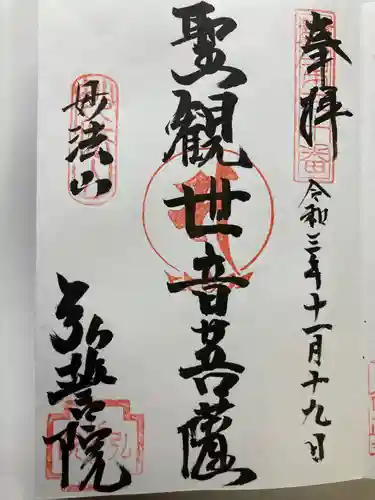 奉拝
令和三年十一月十九日
聖観世音菩薩
妙法山
弘誓院